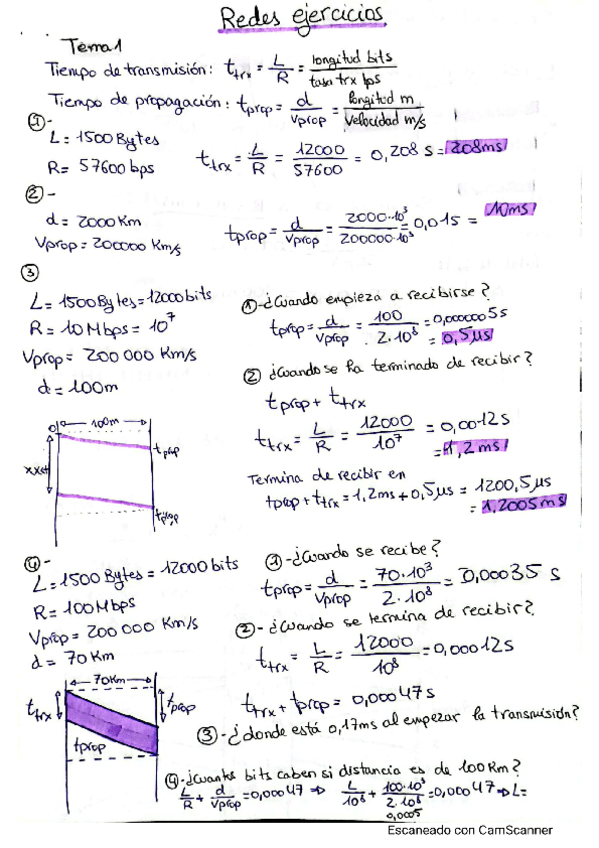 Redes ejercicios
Tema 1
Tiempo de transmisión: t_trx = L/R = longitud bits / tasa trx bps
Tiempo de propagación: t_prop = d/v_prop = longitud m / velocidad m/s
①-
L = 1500 Bytes
R = 57600 bps
t_trx = L/R = 12000/57600 = 0,208 s = 208ms
②-
d = 2000 Km
V_prop = 200000 Km/s
t_prop = d/v_prop = 2000·10³/200000·10³ = 0,01s = 10ms
③
L = 1500 Bytes = 12000 bits
R = 10 Mbps = 10⁷
V_prop = 200 000 Km/s
d = 100m
①-¿Cuando empieza a recibirse?
t_prop = d/v_prop = 100/2·10⁸ = 0,0000005s = 0,5µs
② ¿Cuando se ha terminado de recibir?
t_prop + t_trx
t_trx = L/R = 12000/10⁷ = 0,0012s = 1,2ms
Termina de recibir en
t_prop + t_trx = 1,2ms + 0,5µs = 1200,5µs = 1,2005ms
0 100m
t_prop
t_prop
④-
L = 1500 Bytes = 12000 bits
R = 100 Mbps
V_prop = 200 000 Km/s
d = 70 Km
①-¿Cuando se recibe?
t_prop = d/v_prop = 70·10³/2·10⁸ = 0,00035 s
②-¿Cuando se termina de recibir?
t_trx = L/R = 12000/10⁸ = 0,00012s
t_trx + t_prop = 0,00047s
70Km
t_trx
t_prop
t_prop
③-¿donde está 0,17ms al empezar la transmisión?
④-¿Cuantos bits caben si distancia es de 100Km?
L/R + d/v_prop = 0,00047 ⇒ L/10⁸ + 100·10³/2·10⁸ = 0,00047 ⇒ L=
0,0005
Escaneado con CamScanner